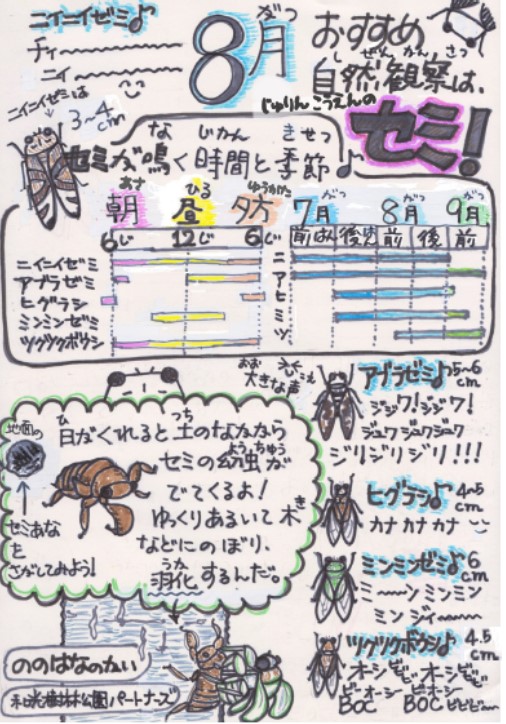 ニイニイゼミ♪
チィ〜
ニィ〜
ニイニイゼミは
3〜4cm
8月
がつ
おすすめ
しぜんかんさつ
自然観察は、
じゅりんこうえんの
セミ!
な じかん きせつ
セミが鳴く時間と季節♪
あさ ひる ゆうがた
朝 昼 夕方
6じ 12じ 6じ
がつ がつ がつ
7月 8月 9月
前はん 後はん 前 後 前
ニイニイゼミ ニ
アブラゼミ ア
ヒグラシ ヒ
ミンミンゼミ ミ
ツクツクボウシ ツ
おお こえ
大きな声
アブラゼミ♪ 5〜6cm
ジジワ!ジジワ!
ジュワジュワジュワ
ジリジリジリ!!!
ヒグラシ♪ 4〜5cm
カナカナカナ
ミンミンゼミ♪ 6cm
ミ〜ンミンミン
ミンジィ〜
ツクツクボウシ♪ 4.5cm
オーシ オーシ
ピーオーシ ピーオーシ
ひ つち
日がくれると土のなかから
ようちゅう
セミの幼虫が
でてくるよ!
き
ゆっくりあるいて木
などにのぼり、
うか
羽化するんだ。
地面の
セミあな
を
さがしてみよう!
ののはなのかい
和光樹林公園パートナーズ